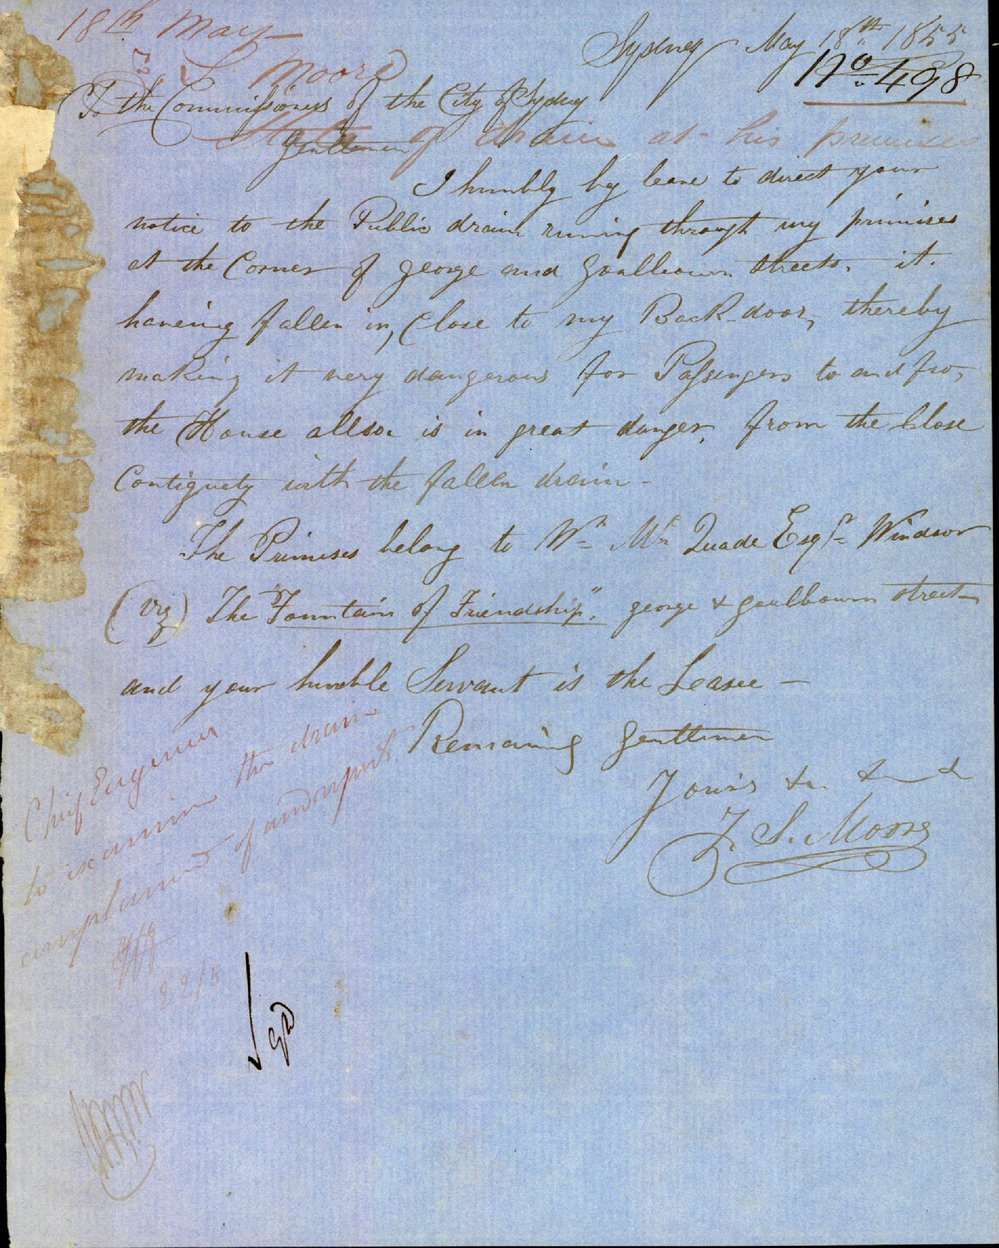 18th May
Sydney May 18th 1855
Moore
No 498
To the Commissioners of the City of Sydney
State of drain at his premises
Gentlemen
I humbly by leave to direct your
notice to the Public drain runing through my primises
at the Corner of George and Goulbourn streets. it
haveing fallen in, Close to my Back-door, thereby
making it very dangerous for Passengers to and fro,
the House allso is in great danger, from the Close
Contiguety with the fallen drain -
The Primises belong to Wm Mc Quade Esqr Windsor
(viz) The "Fountain of Friendship", George & Goulbourn streets
and your humble Servant is the Leasee -
Remaing Gentlemen
Yours &c &c &c
S. Moore
Chief Engineer
to examine the drain
complained of and report.
22/5